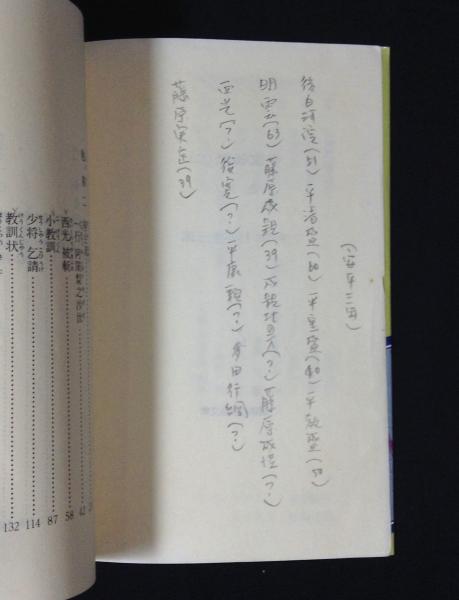 (安元三年)
後白河院(51) 平清盛(60) 平重盛(40) 平教盛(50)
明雲(63) 藤原成親(39) 成親北の方(?) 藤原成経(?)
西光(?) 俊寛(?) 平康頼(?) 多田行綱(?)
藤原実定(39)
西光被斬 58
小教訓 87
少将乞請 114
教訓状 132